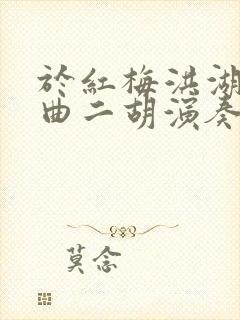 於紅梅洪湖
曲二胡演奏
莫念